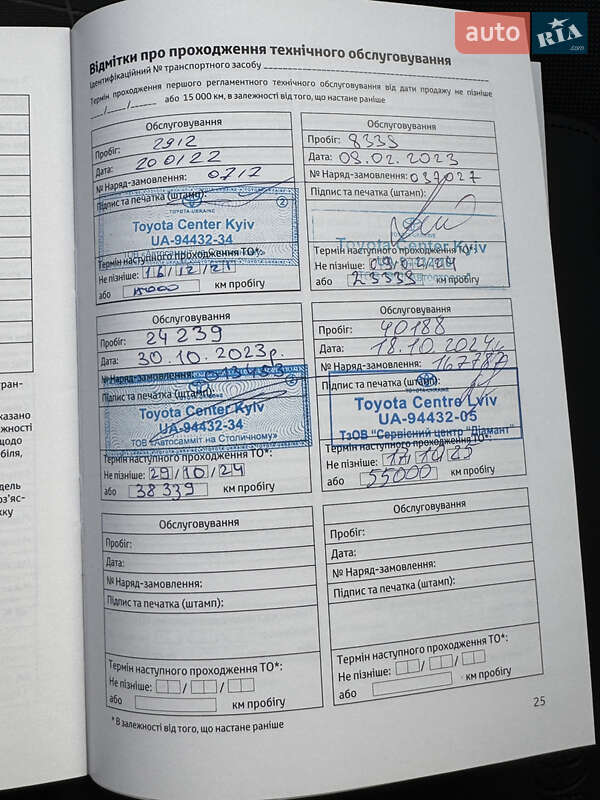 auto RIA .com
Відмітки про проходження технічного обслуговування
Ідентифікаційний № транспортного засобу
Термін проходження першого регламентного технічного обслуговування від дати продажу не пізніше
__/__/____ або 15 000 км, в залежності від того, що настане раніше
Обслуговування
Пробіг: 2912
Дата:
№ Наряд-замовлення:
Підпис та печатка (штамп):
TOYOTA-UKRAINE
2
Toyota Center Kyiv
UA-94432-34
Термін наступного проходження ТО*:
Не пізніше:
або км пробігу
Обслуговування
Пробіг: 8339
Дата: 09.02.2023
№ Наряд-замовлення: 039027
Підпис та печатка (штамп):
Toyota Center Kyiv
Термін наступного проходження ТО*:
Не пізніше: 09/02/24
або 23339 км пробігу
Обслуговування
Пробіг: 24 239
Дата: 30.10.2023р.
№ Наряд-замовлення:
Підпис та печатка (штамп):
2
Toyota Center Kyiv
UA-94432-34
ТОВ «Автосамміт на Столичному»
Термін наступного проходження ТО*:
Не пізніше: 29/10/24
або 38 339 км пробігу
Обслуговування
Пробіг: 40188
Дата: 18.10.2024
№ Наряд-замовлення:
Підпис та печатка (штамп):
TOYOTA-UKRAINE
Toyota Centre Lviv
UA-94432-05
ТзОВ "Сервісний центр "Діамант"
Термін наступного проходження ТО*:
Не пізніше: 17/10/25
або 55000 км пробігу
Обслуговування
Пробіг:
Дата:
№ Наряд-замовлення:
Підпис та печатка (штамп):
Термін наступного проходження ТО*:
Не пізніше: / /
або км пробігу
Обслуговування
Пробіг:
Дата:
№ Наряд-замовлення:
Підпис та печатка (штамп):
Термін наступного проходження ТО*:
Не пізніше: / /
або км пробігу
* В залежності від того, що настане раніше
25